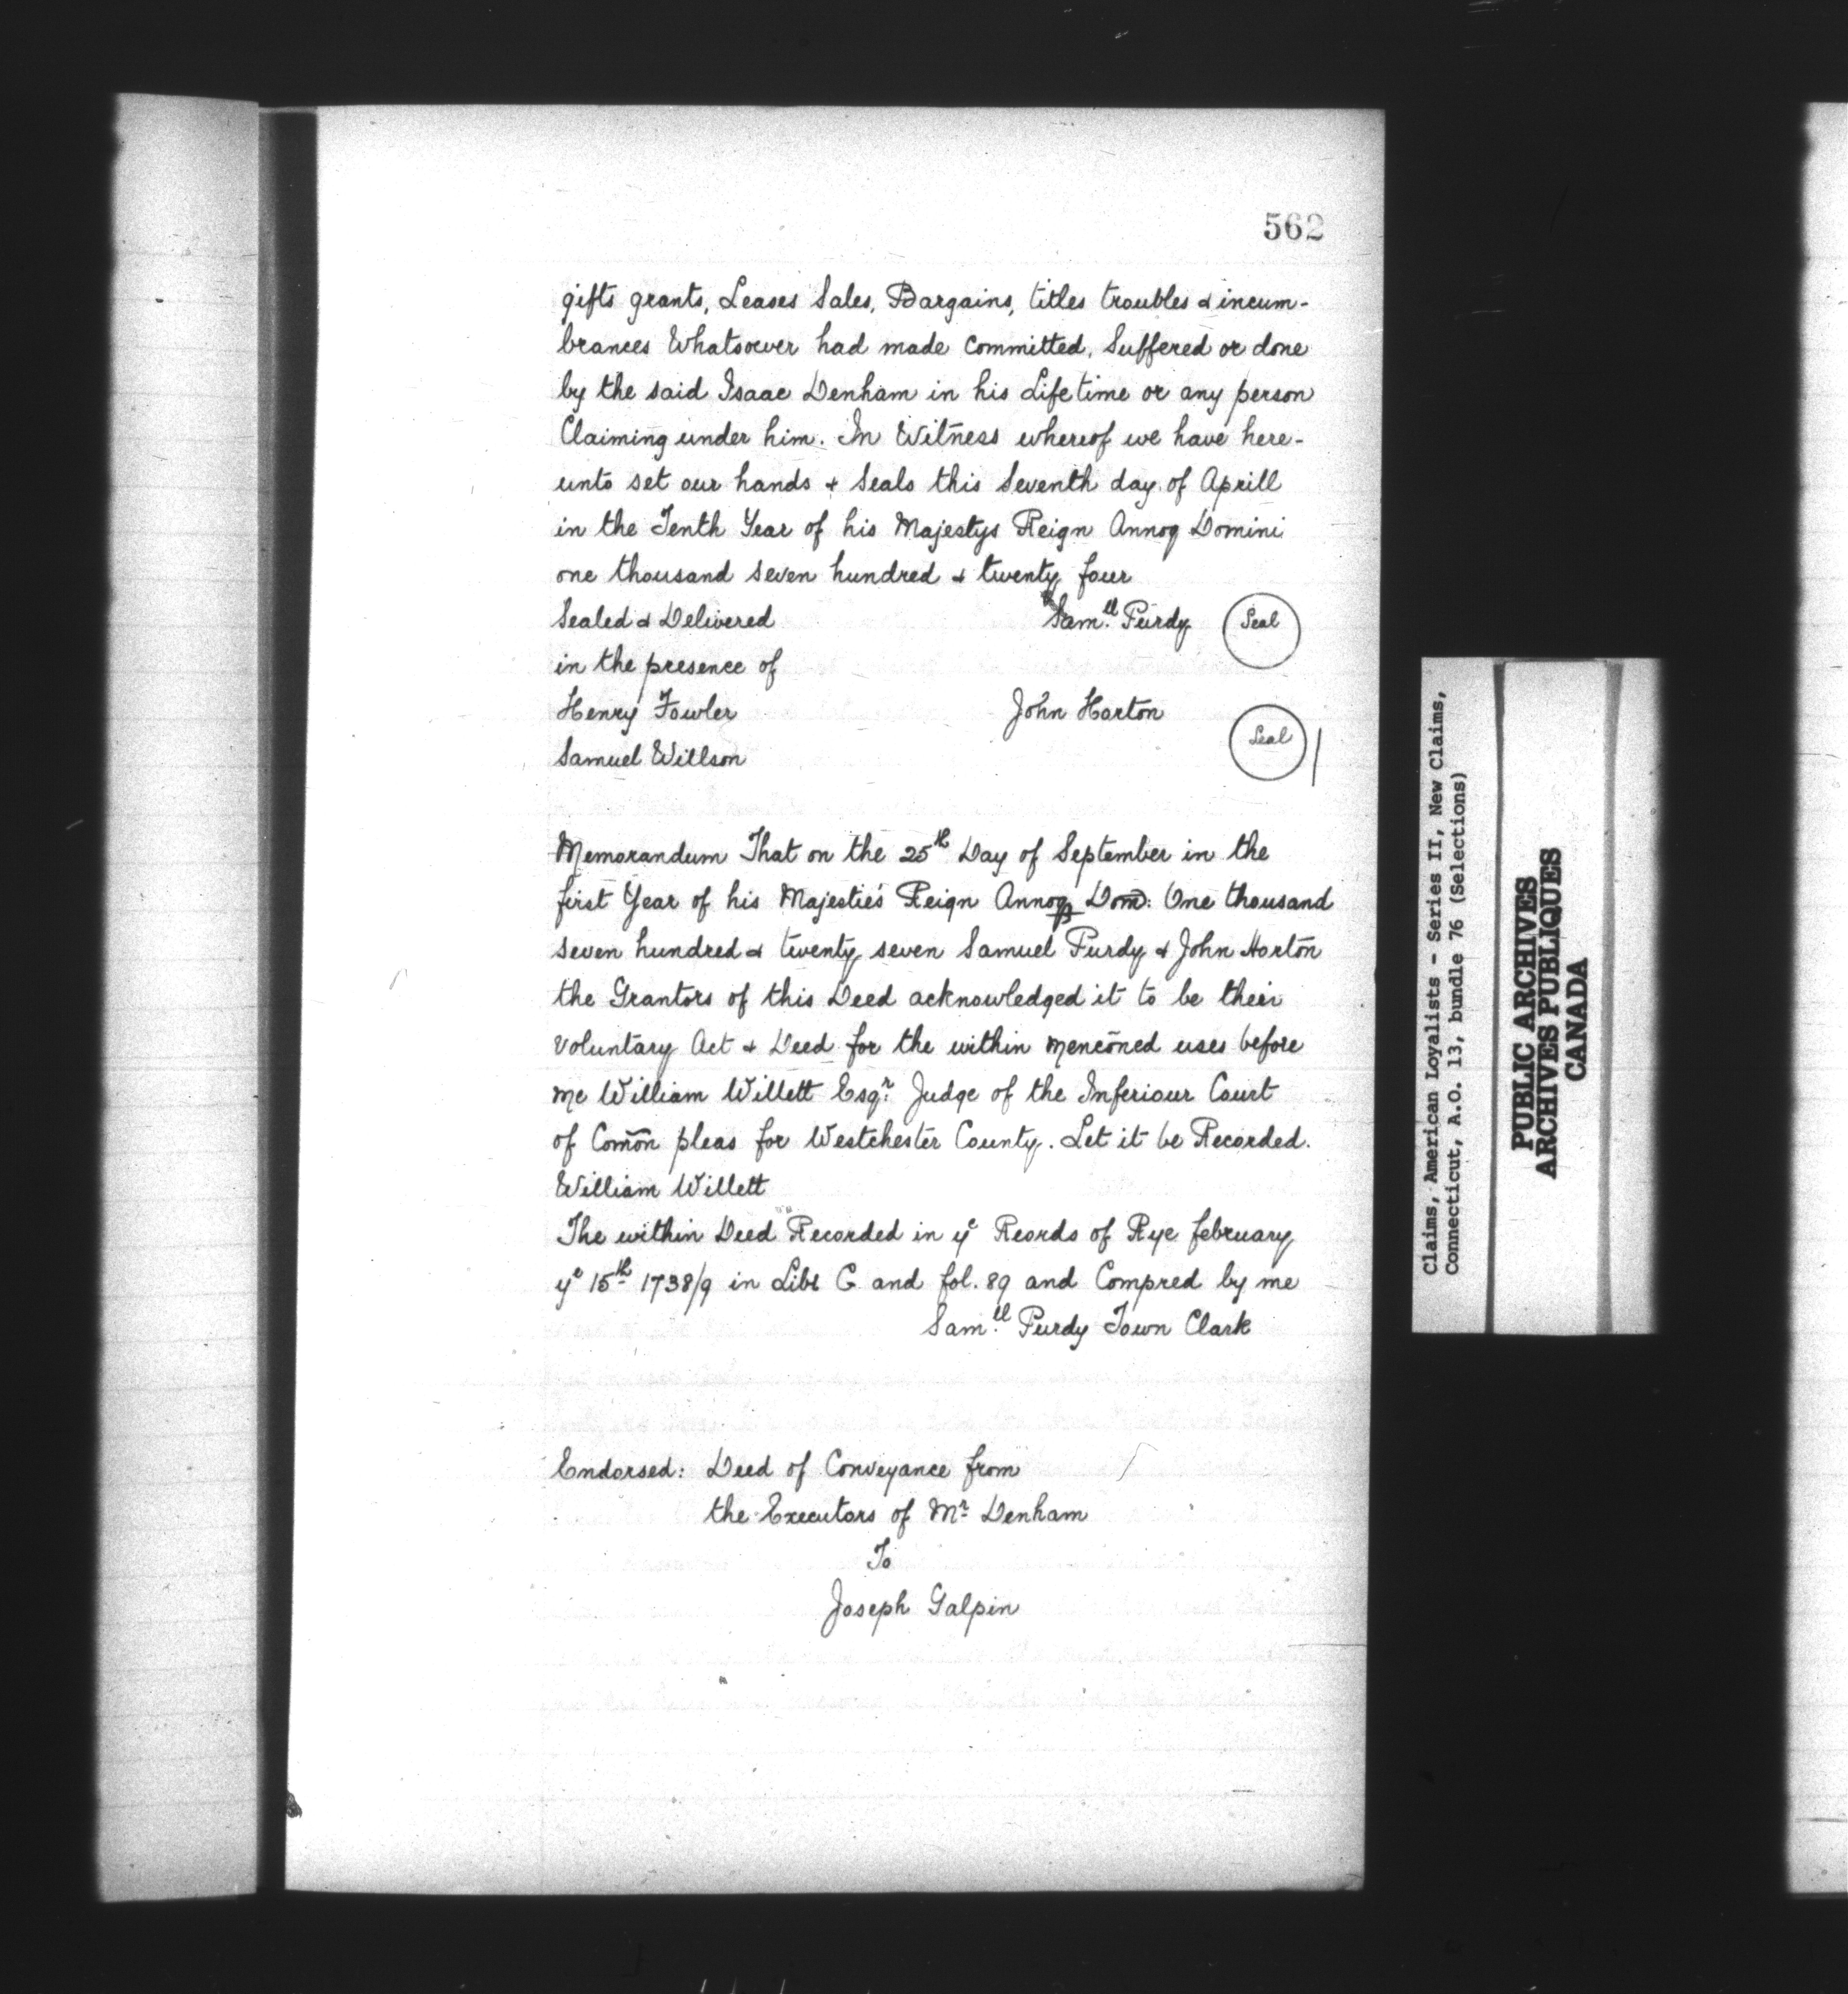 562
gifts grants, Leases Sales, Bargains, titles troubles & incum-
brances Whatsoever had made Committed, Suffered or done
by the said Isaac Denham in his Lifetime or any person
Claiming under him. In Witness whereof we have here-
unto set our hands & Seals this Seventh day of Aprill
in the Tenth Year of his Majestys Reign Annoq Domini
one thousand seven hundred & twenty four
Sealed & Delivered Sam.ll Purdy Seal
in the presence of
Henry Fowler John Horton Seal
Samuel Willson
Memorandum That on the 25th Day of September in the
first Year of his Majestie's Reign Annoq Dom: One thousand
seven hundred & twenty seven Samuel Purdy & John Horton
the Grantors of this Deed acknowledged it to be their
Voluntary Act & Deed for the within mencōned uses before
me William Willett Esqr. Judge of the Inferiour Court
of Comōn pleas for Westchester County. Let it be Recorded.
William Willett
The within Deed Recorded in ye Reords of Rye february
ye 15th 1738/9 in Libr C and fol. 89 and Compred by me
Sam.ll Purdy Town Clark
Endorsed: Deed of Conveyance from
the Executors of Mr Denham
To
Joseph Galpin
Claims, American Loyalists - Series II, New Claims,
Connecticut, A.O. 13, bundle 76 (Selections)
PUBLIC ARCHIVES
ARCHIVES PUBLIQUES
CANADA